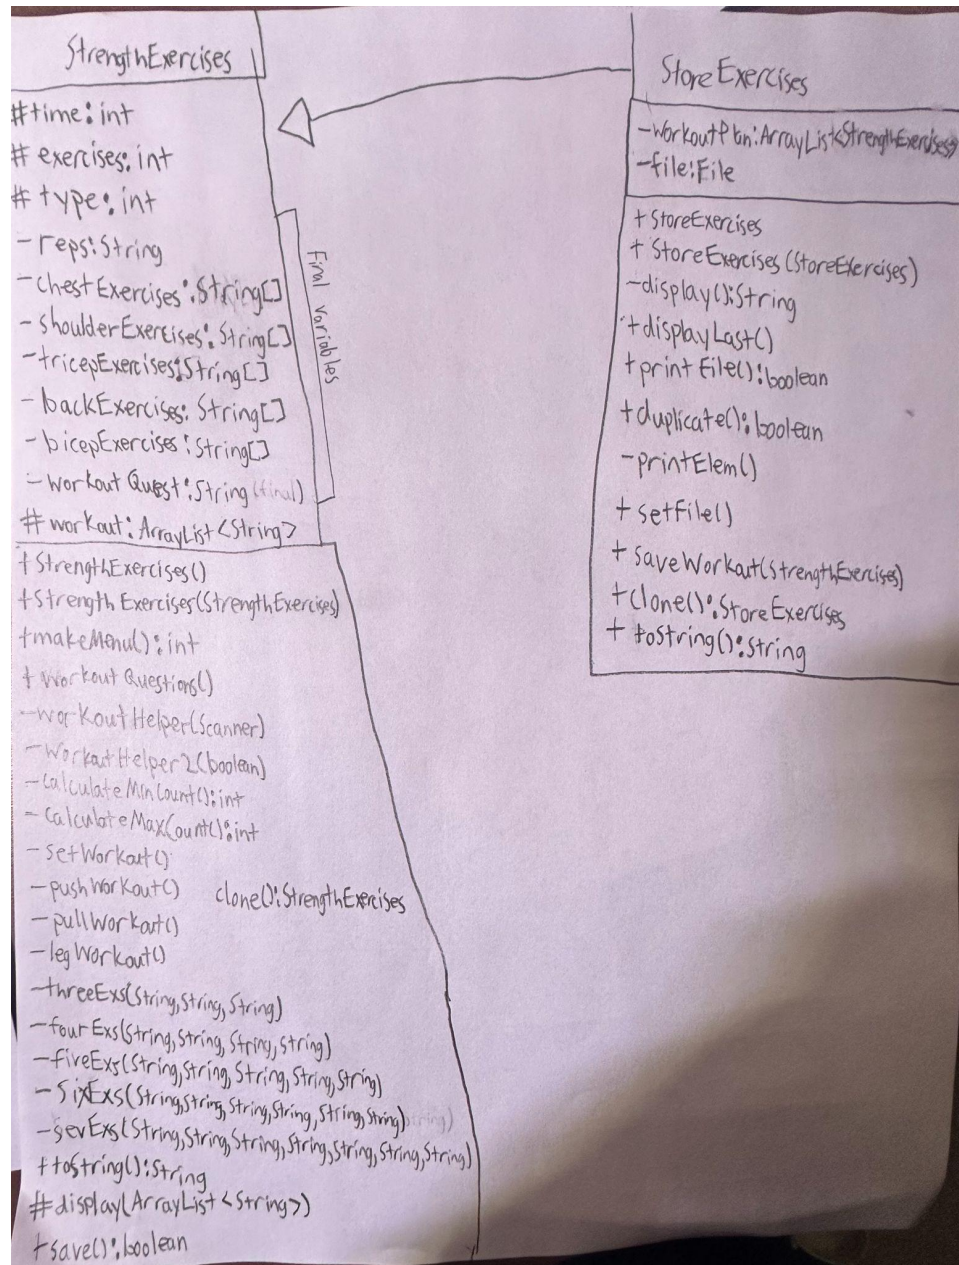 StrengthExercises
#time:int
# exercises:int
# type:int
-reps:String
-chestExercises:String[]
-shoulderExercises:String[]
-tricepExercises:String[]
-backExercises:String[]
-bicepExercises:String[]
-workoutQuest:String(final)
# workout:ArrayList<String>
Final variables
+StrengthExercises()
+StrengthExercises(StrengthExercises)
+makeMenu():int
+WorkoutQuestions()
-workoutHelper(Scanner)
-workoutHelper2(boolean)
-calculateMinCount():int
-calculateMaxCount():int
-setWorkout()
-pushWorkout()
clone():StrengthExercises
-pullWorkout()
-legWorkout()
-threeExs(String,String,String)
-fourExs(String,String,String,String)
-fiveExs(String,String,String,String,String)
-SixExs(String,String,String,String,String,String)
-sevExs(String,String,String,String,String,String,String)
+toString():String
#display(ArrayList<String>)
+save():boolean
StoreExercises
-workoutPlan:ArrayList<StrengthExercises>
-file:File
+StoreExercises
+StoreExercises(StoreExercises)
-display():String
+displayLast()
+printFile():boolean
+duplicate():boolean
-printElem()
+setFile()
+saveWorkout(StrengthExercises)
+clone():StoreExercises
+ toString():String